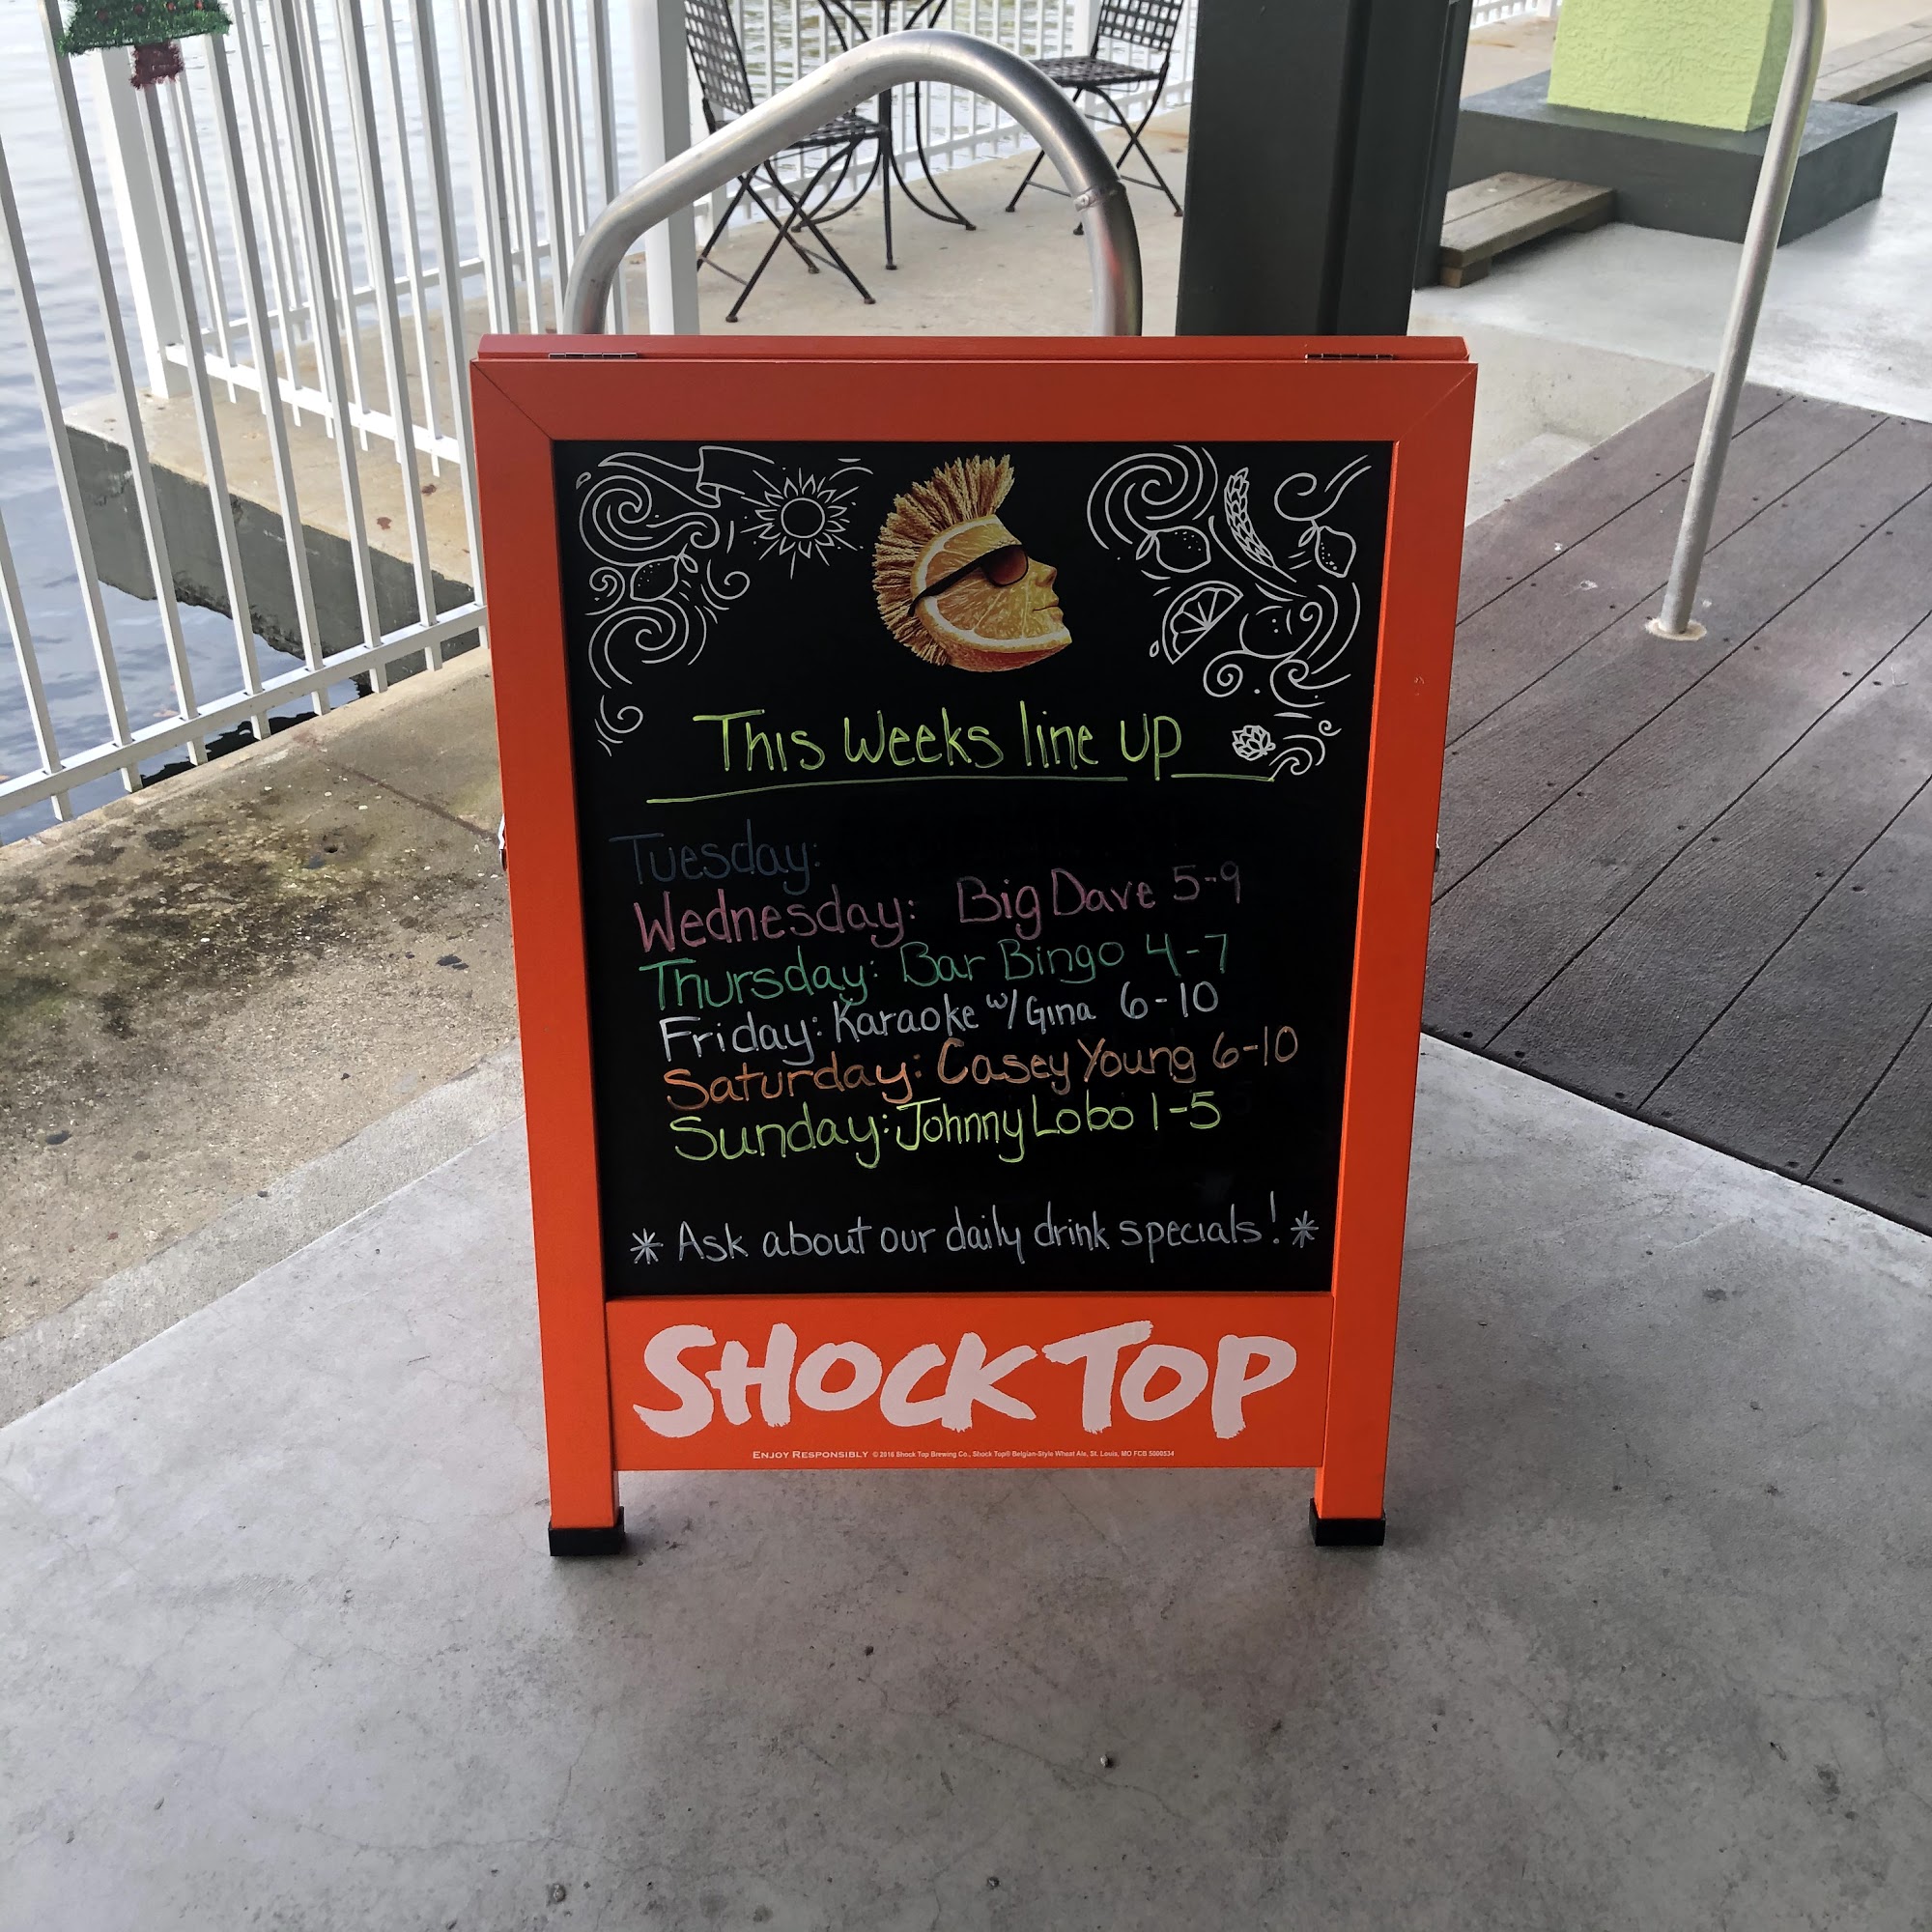 This Weeks line up
Tuesday:
Wednesday: Big Dave 5-9
Thursday: Bar Bingo 4-7
Friday: Karaoke w/ Gina 6-10
Saturday: Casey Young 6-10
Sunday: Johnny Lobo 1-5
* Ask about our daily drink specials! *
SHOCK TOP
ENJOY RESPONSIBLY © 2016 Shock Top Brewing Co., Shock Top® Belgian-Style Wheat Ale, St. Louis, MO FCB 5000534